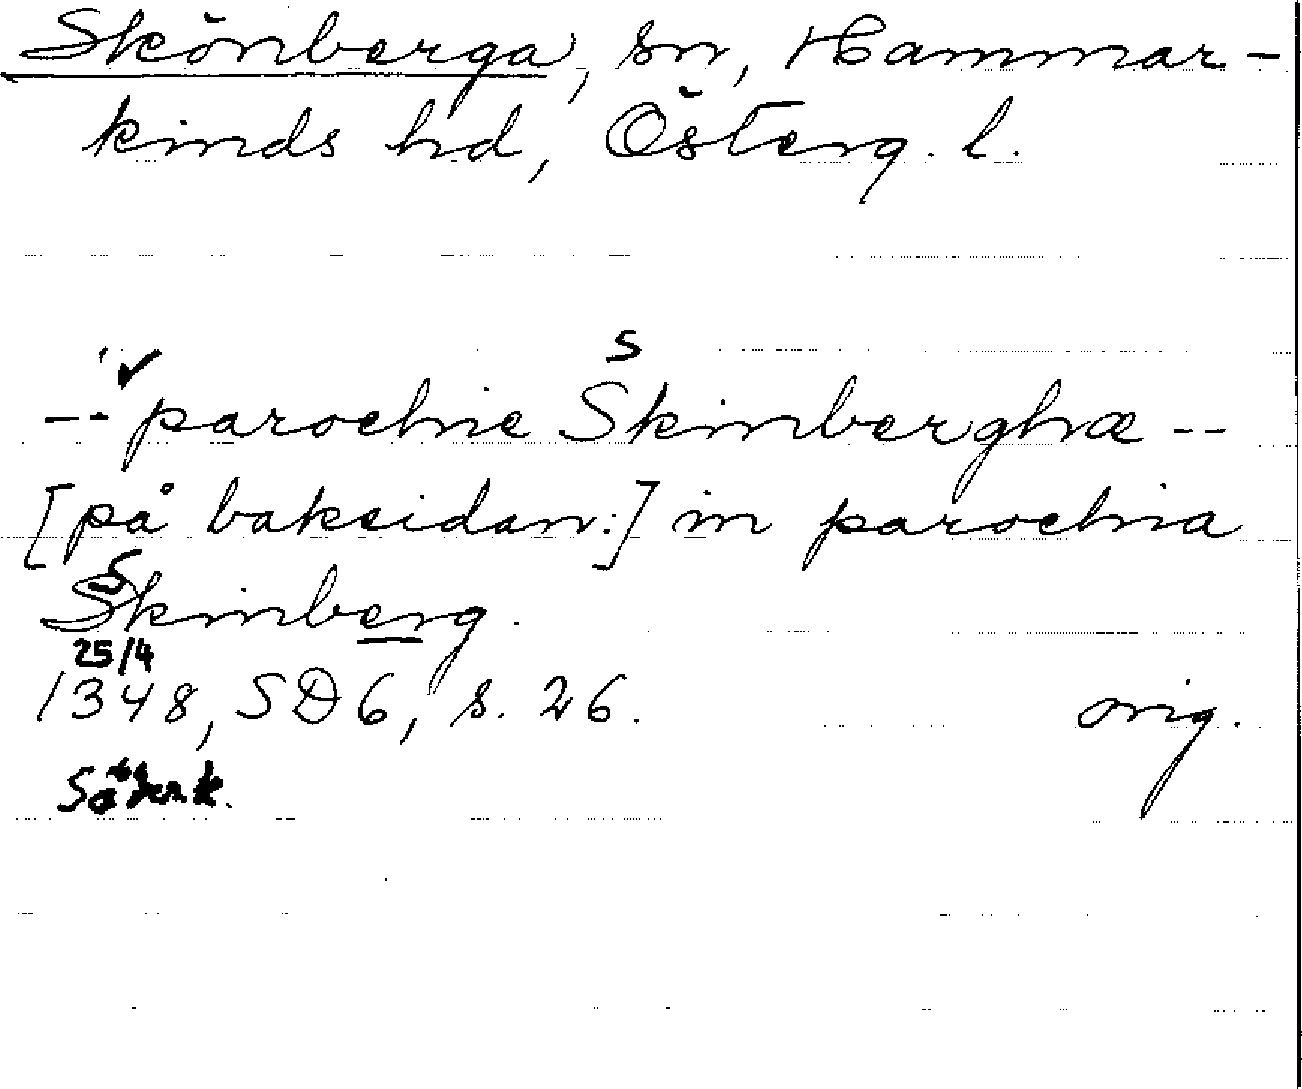 Skönberga, sn, Hammar-
kinds hd, Österg. l.
✓ s
-- parochie Skinberghæ --
[på baksidan:] in parochia
s
Skinberg.
25/4
1348, SD6, s. 26. orig.
Söderk.